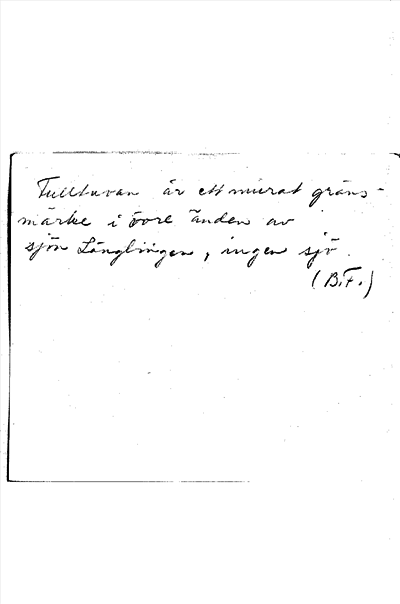 Tulltuvan är ett murat gräns-
märke i övre änden av
sjön Långlingen, ingen sjö.
(B.F.)